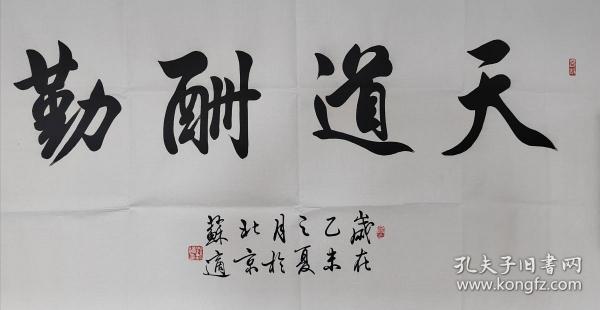 天道酬勤
歲在
乙未
之夏
月於
北京
蘇適
孔夫子旧书网
www.kongfz.com